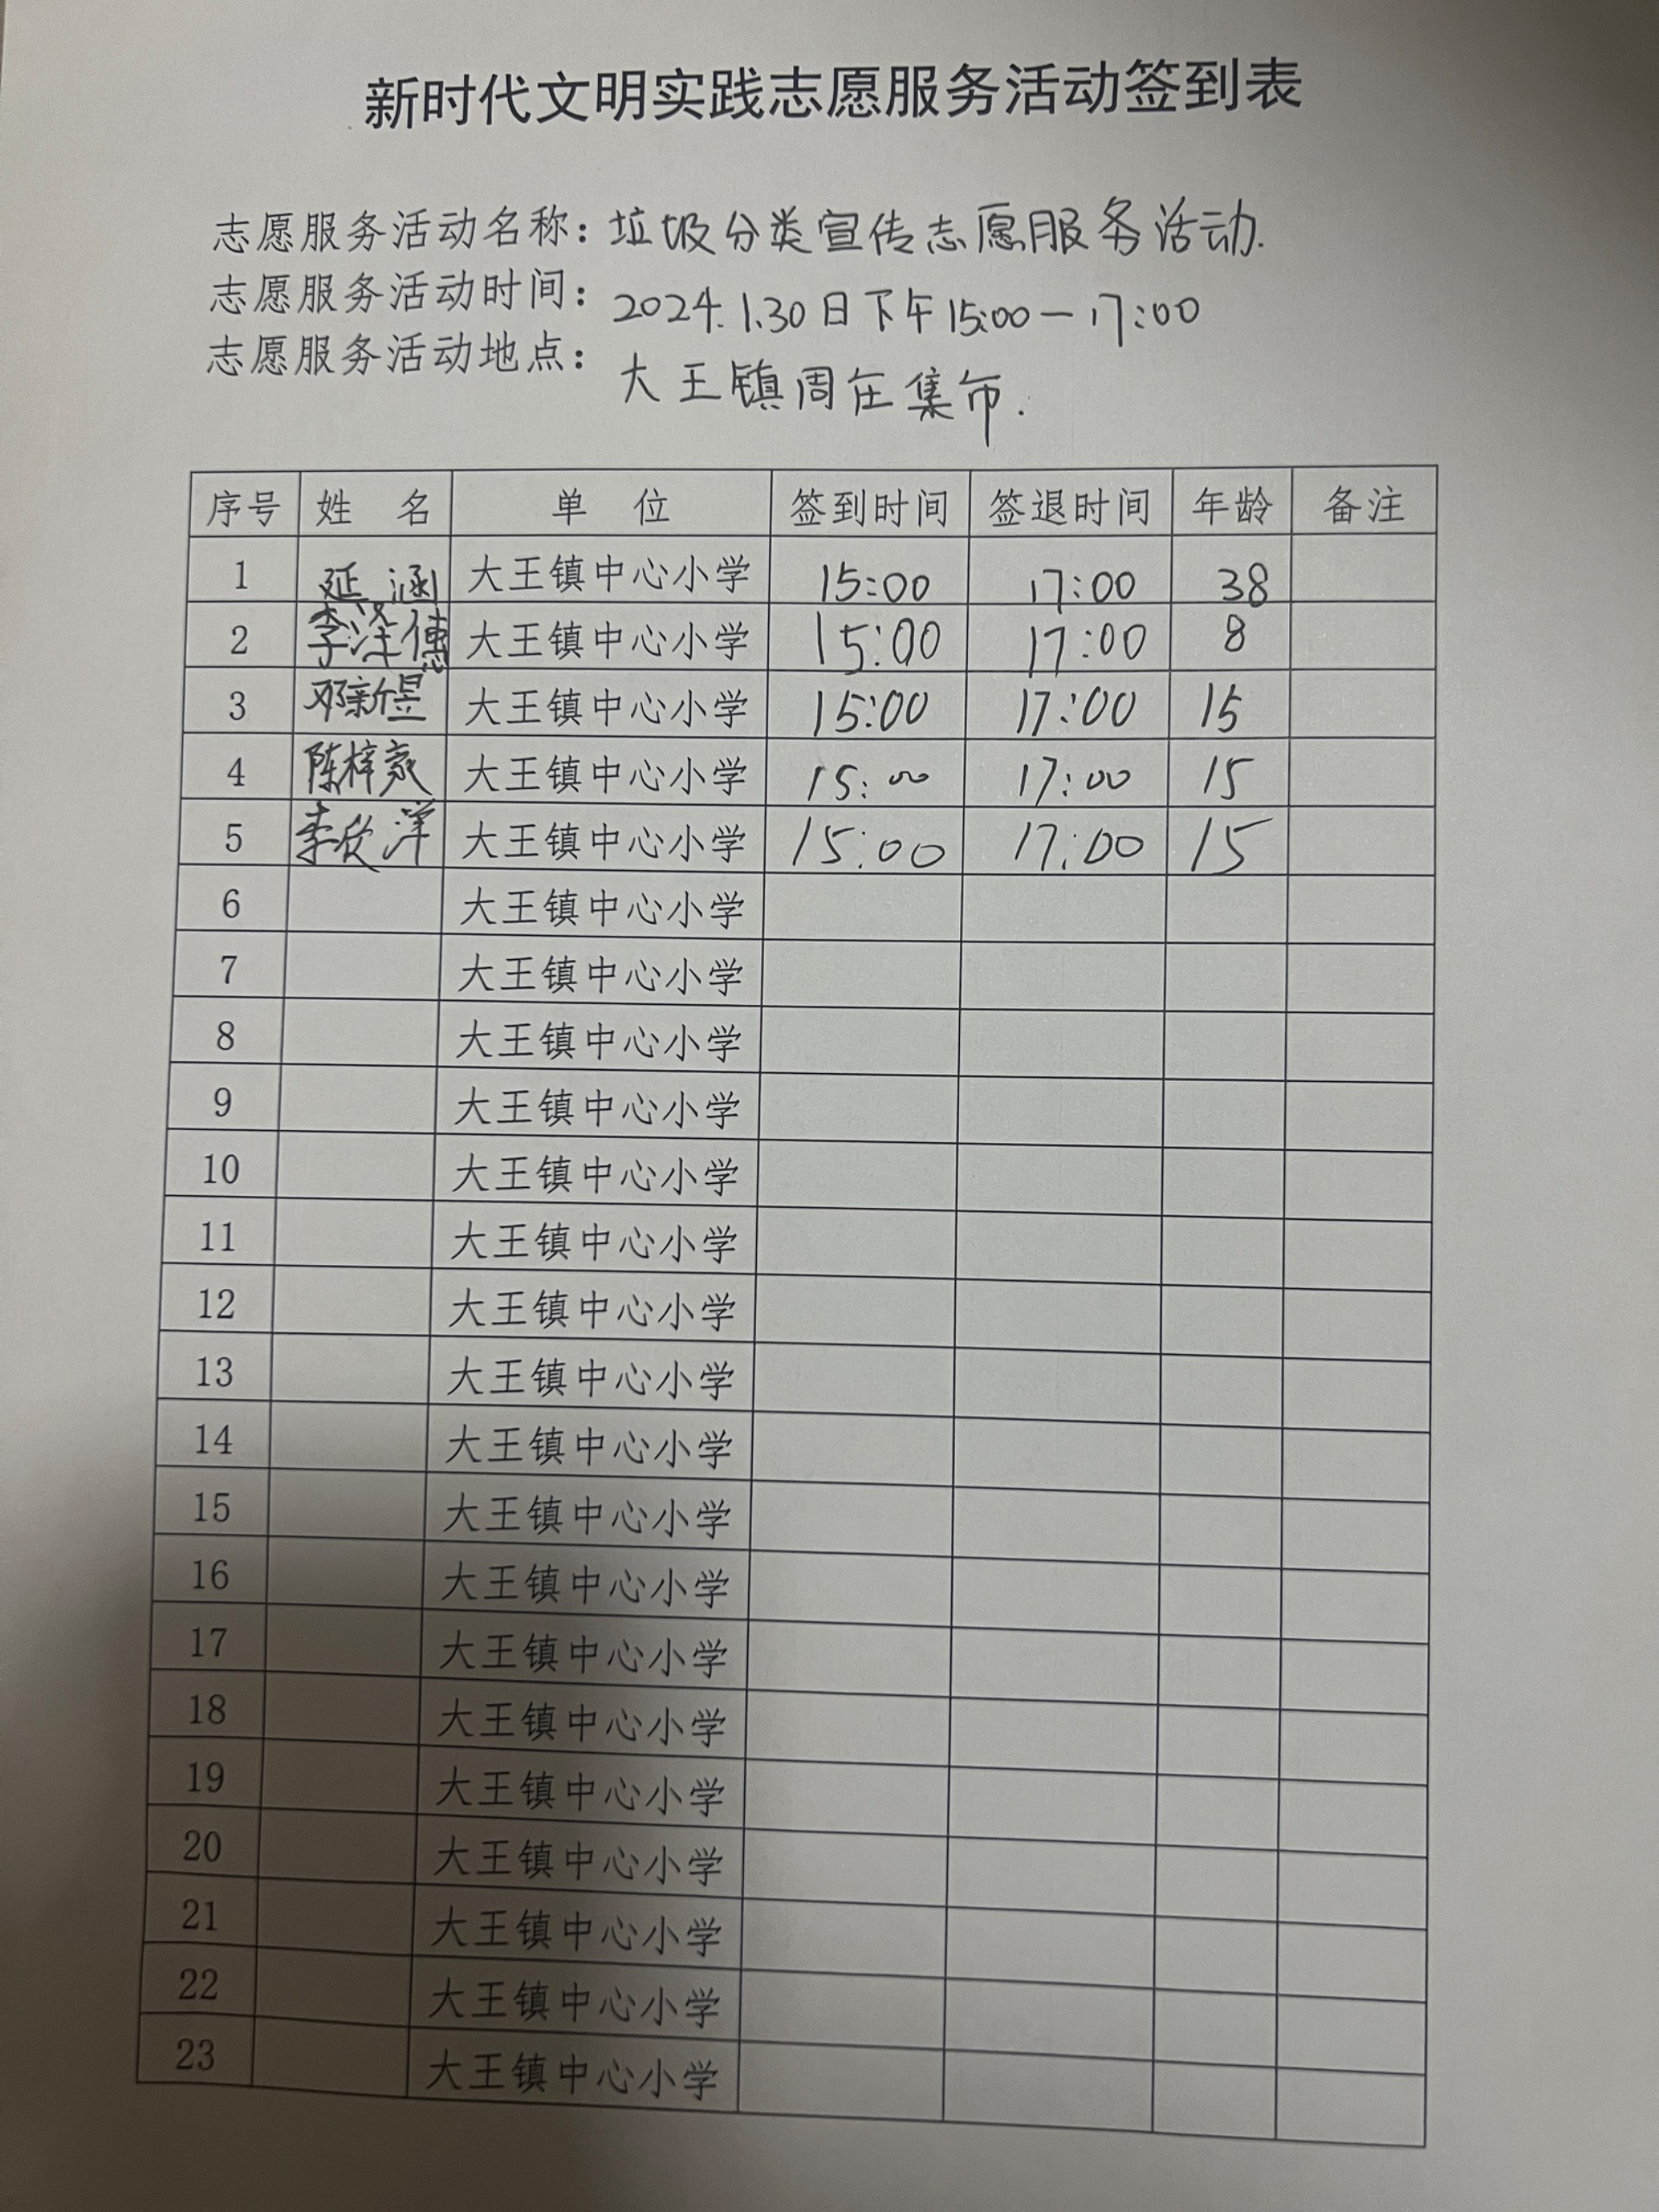 新时代文明实践志愿服务活动签到表
志愿服务活动名称：垃圾分类宣传志愿服务活动.
志愿服务活动时间：2024.1.30日下午15:00—17:00
志愿服务活动地点：大王镇周庄集市.
序号 姓 名 单 位 签到时间 签退时间 年龄 备注
1 延涵 大王镇中心小学 15:00 17:00 38
2 李泽 大王镇中心小学 15:00 17:00 8
3 邓新昱 大王镇中心小学 15:00 17:00 15
4 陈梓 大王镇中心小学 15:00 17:00 15
5 李欣洋 大王镇中心小学 15:00 17:00 15
6 大王镇中心小学
7 大王镇中心小学
8 大王镇中心小学
9 大王镇中心小学
10 大王镇中心小学
11 大王镇中心小学
12 大王镇中心小学
13 大王镇中心小学
14 大王镇中心小学
15 大王镇中心小学
16 大王镇中心小学
17 大王镇中心小学
18 大王镇中心小学
19 大王镇中心小学
20 大王镇中心小学
21 大王镇中心小学
22 大王镇中心小学
23 大王镇中心小学